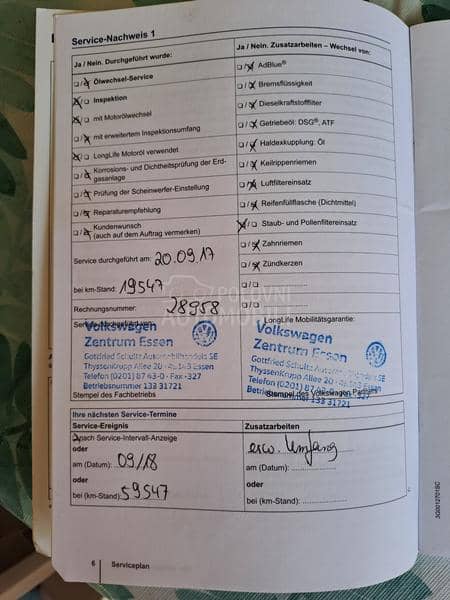 Service-Nachweis 1
Ja / Nein. Durchgeführt wurde:
Ja / Nein. Zusatzarbeiten – Wechsel von:
Ölwechsel-Service
AdBlue®
Inspektion
Bremsflüssigkeit
mit Motorölwechsel
Dieselkraftstofffilter
mit erweitertem Inspektionsumfang
Getriebeöl: DSG®, ATF
LongLife Motoröl verwendet
Haldexkupplung: Öl
Korrosions- und Dichtheitsprüfung der Erd-
gasanlage
Keilrippenriemen
Prüfung der Scheinwerfer-Einstellung
Luftfiltereinsatz
Reparaturempfehlung
Reifenfüllflasche (Dichtmittel)
Kundenwunsch
(auch auf dem Auftrag vermerken)
Staub- und Pollenfiltereinsatz
Service durchgeführt am: 20.09.17
Zahnriemen
bei km-Stand: 19547
Zündkerzen
Rechnungsnummer: 28958
POLOVNI
AUTOMOBILI
LongLife Mobilitätsgarantie:
Volkswagen
Zentrum Essen
Gottfried Schultz Automobilhandels SE
ThyssenKrupp Allee 20 · 45143 Essen
Telefon (0201) 87 43-0 · Fax -327
Betriebsnummer 133 31721
Stempel des Fachbetriebs
Volkswagen
Zentrum Essen
Gottfried Schultz Automobilhandels SE
ThyssenKrupp Allee 20 · 45143 Essen
Telefon (0201) 87 43-0 · Fax -327
Betriebsnummer 133 31721
Stempel des Volkswagen Partners
Ihre nächsten Service-Termine
Service-Ereignis
Zusatzarbeiten
nach Service-Intervall-Anzeige
oder
am (Datum): 09/18
oder
bei (km-Stand): 59547
Umfang
am (Datum):
oder
bei (km-Stand):
6 Serviceplan